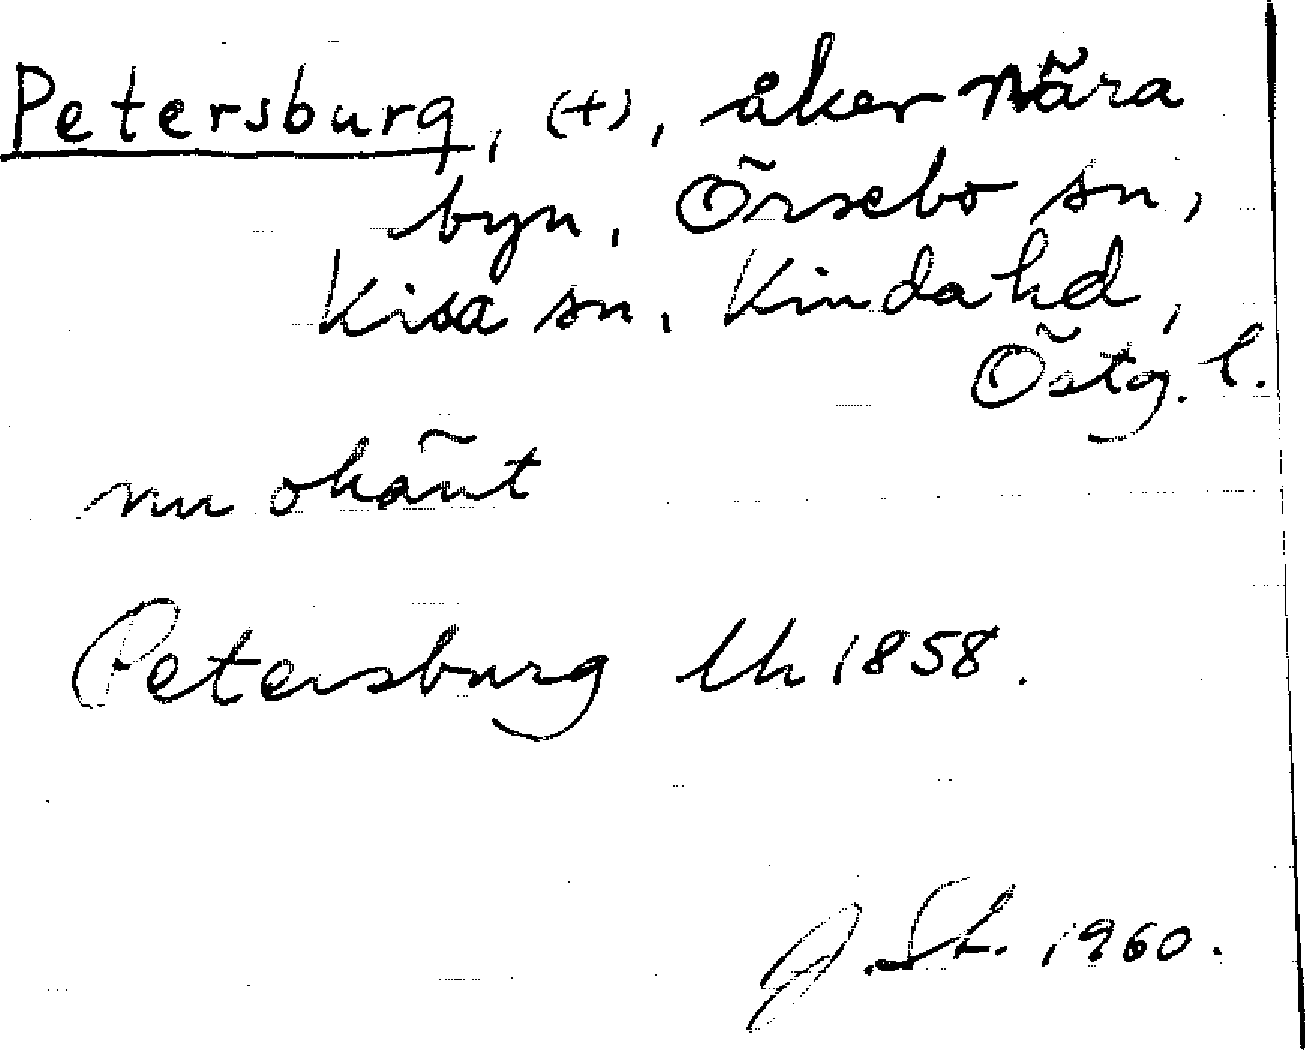 Petersburg, (+), åker nära
byn, Örsebo sn,
Kisa sn, Kinda hd,
Östg. l.
nu okänt
Petersburg lh 1858.
J. St. 1960.